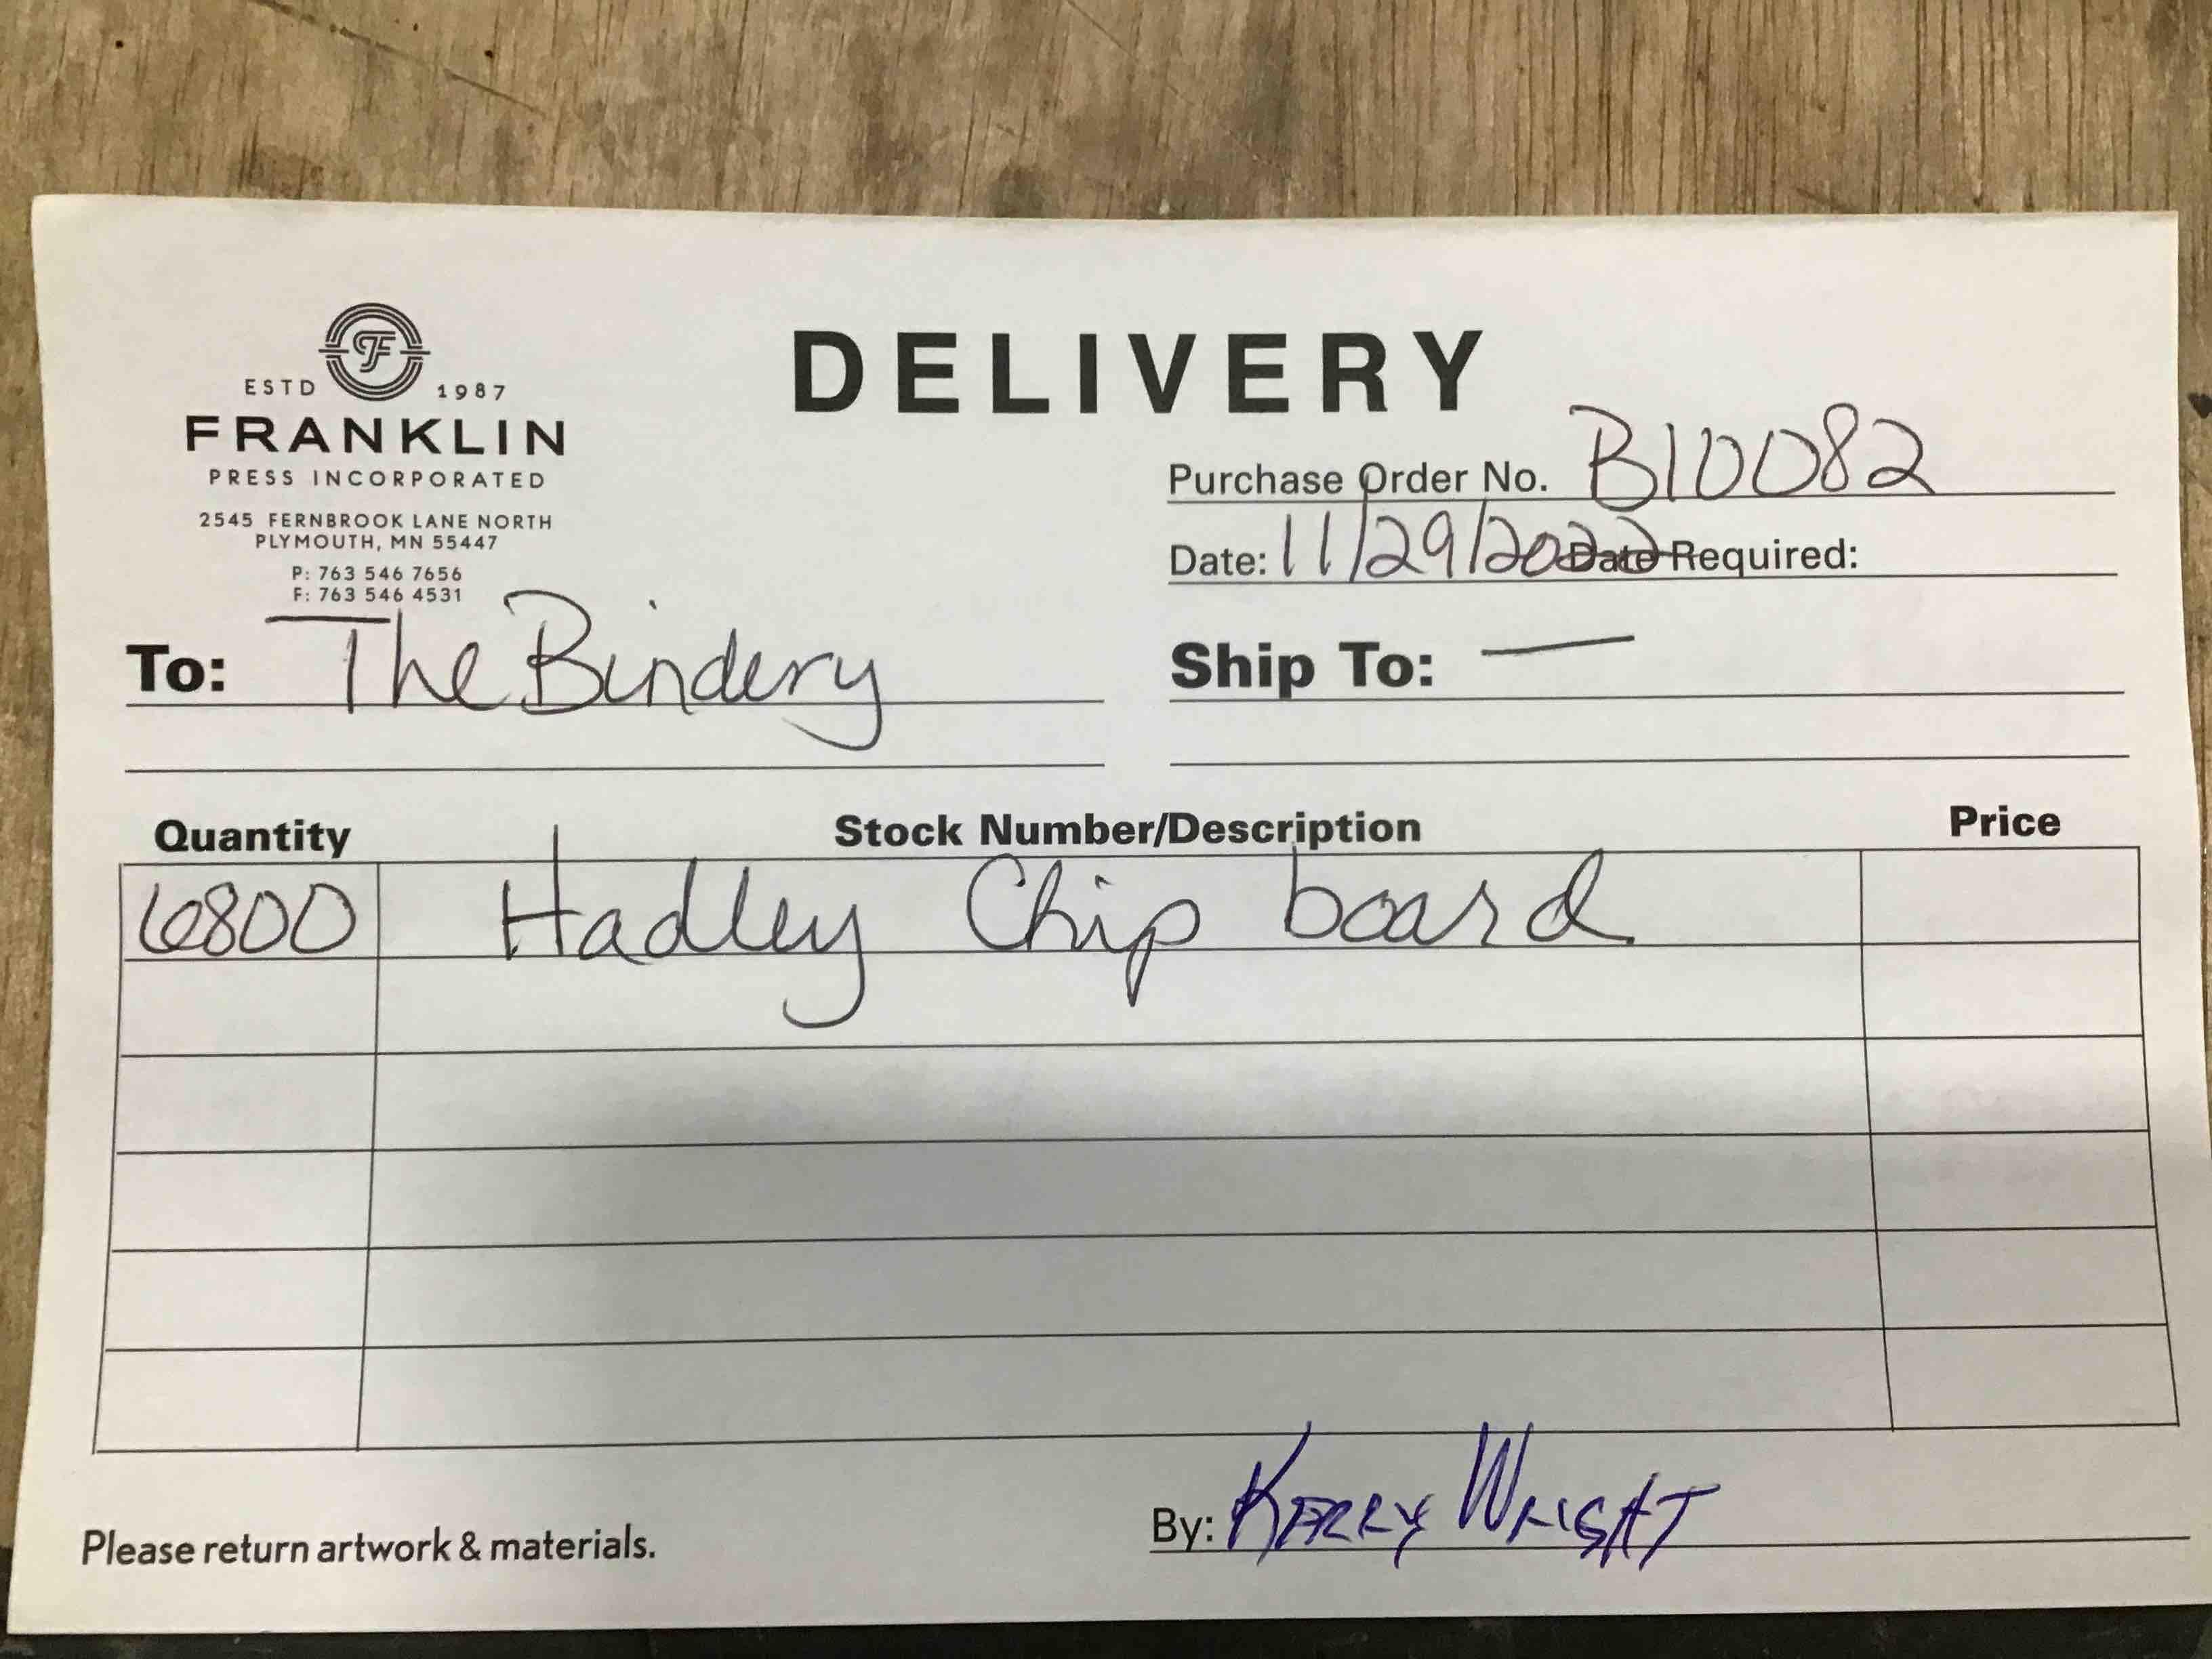 ESTD F 1987
FRANKLIN
PRESS INCORPORATED
2545 FERNBROOK LANE NORTH
PLYMOUTH, MN 55447
P: 763 546 7656
F: 763 546 4531
DELIVERY
Purchase Order No. B10082
Date: 11/29/2022 Date Required:
To: The Bindery
Ship To: —
Quantity Stock Number/Description Price
6800 Hadley Chip board
Please return artwork & materials.
By: KERRY WRIGHT